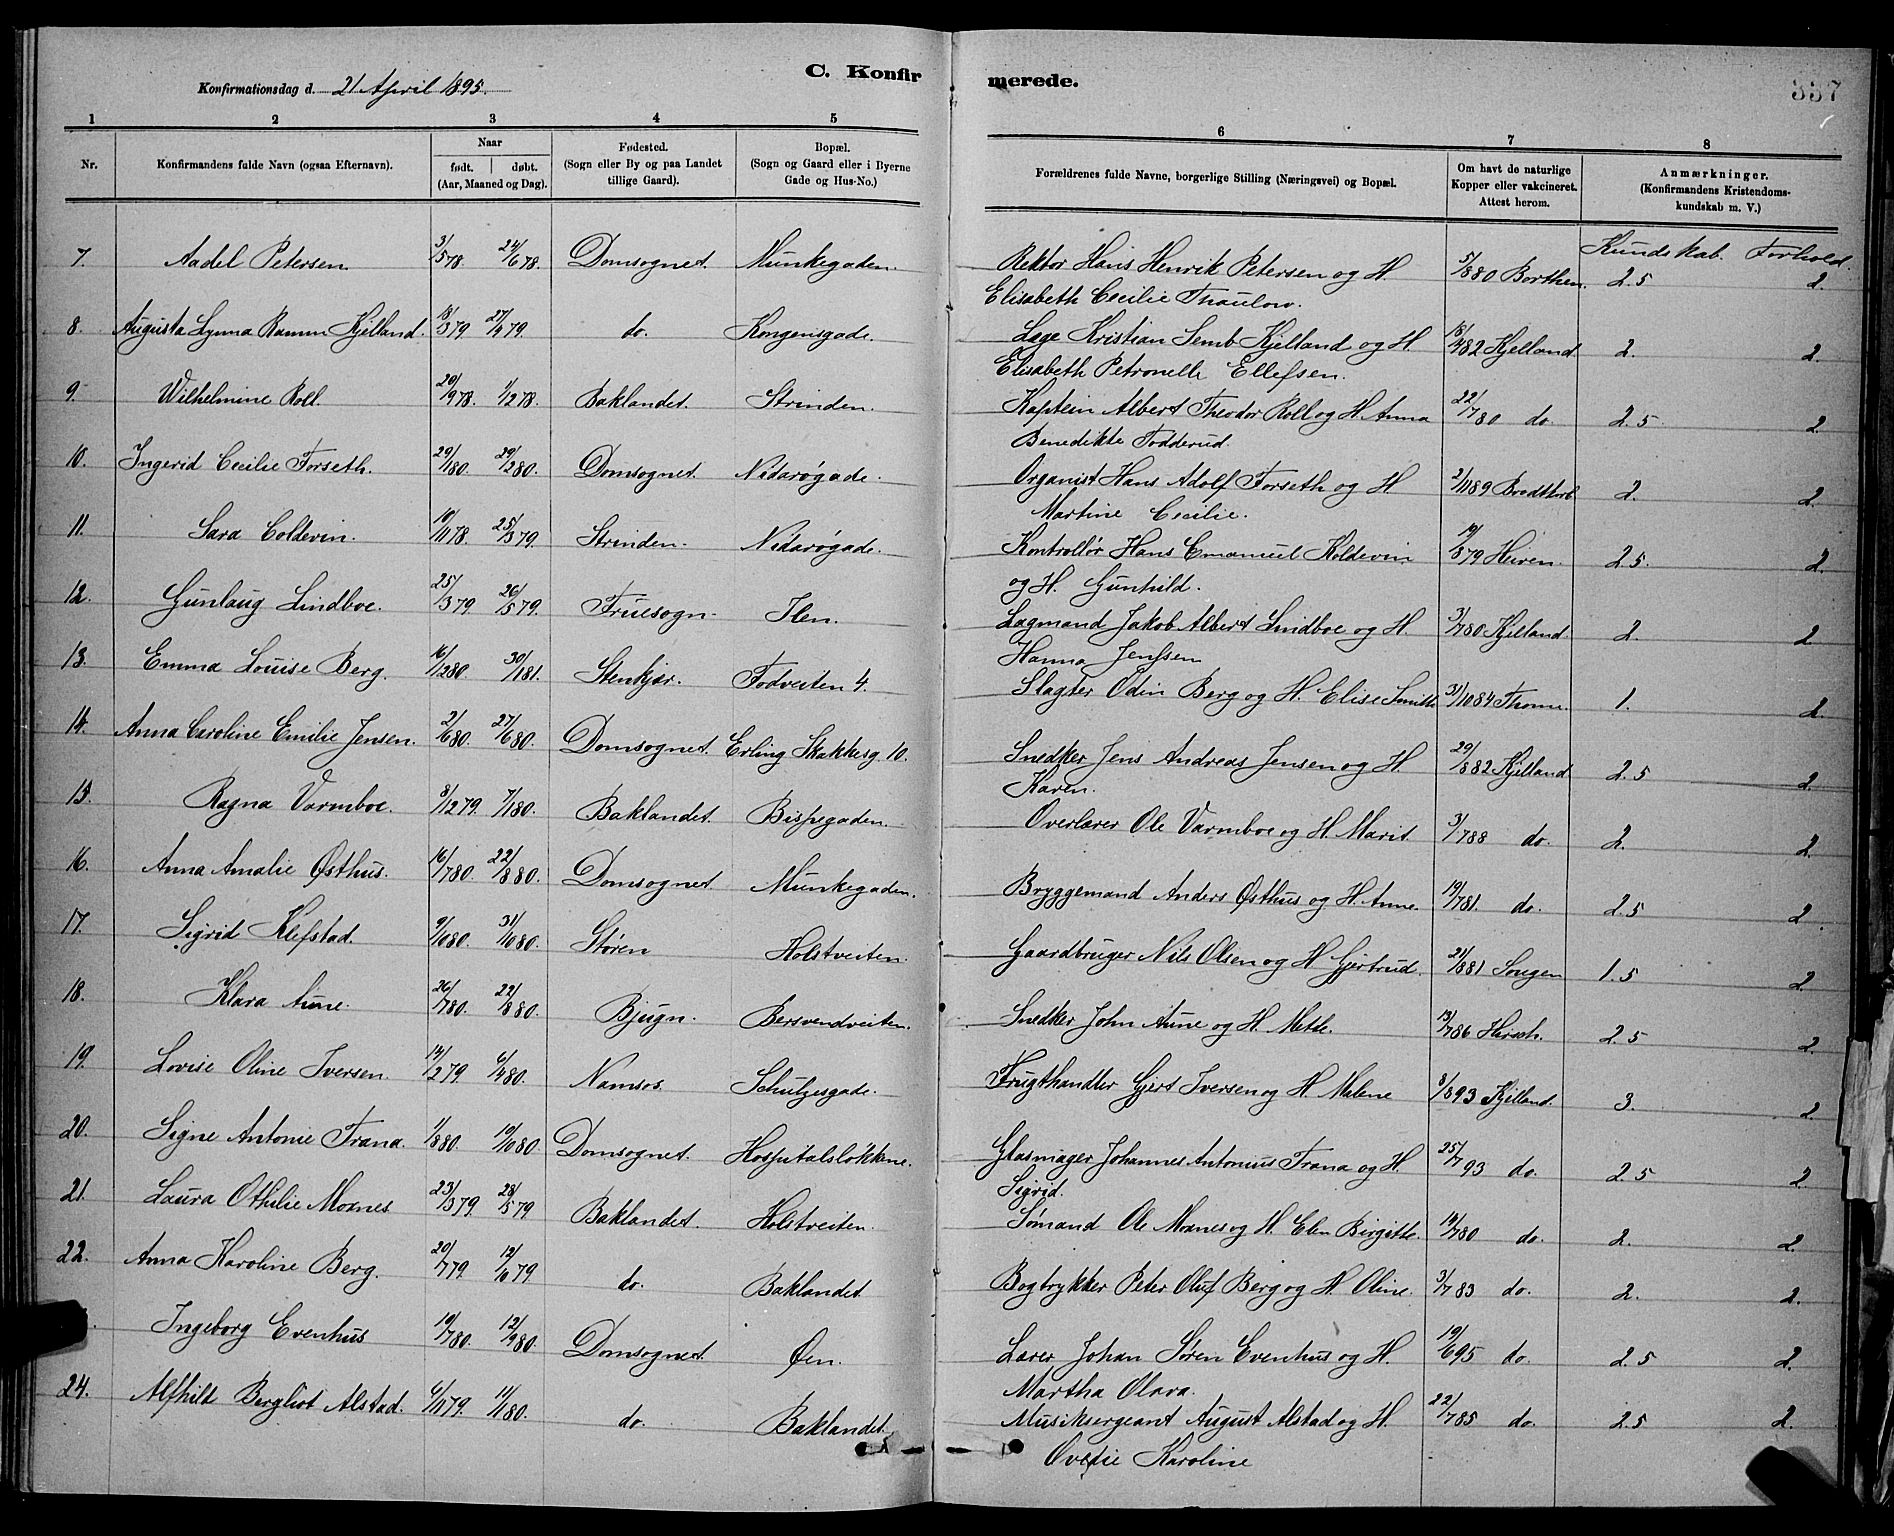 C. Konfirmerede.
337
Konfirmationsdag d. 21 April 1895.
1 2 3 4 5 6 7 8
Nr. Konfirmandens fulde Navn (ogsaa Efternavn). Naar født. døbt. (Aar, Maaned og Dag). Fødested. (Sogn eller By og paa Landet tillige Gaard). Bopæl. (Sogn og Gaard eller i Byerne Gade og Hus-No.) Forældrenes fulde Navne, borgerlige Stilling (Næringsvei) og Bopæl. Om havt de naturlige Kopper eller vakcineret. Attest herom. Anmærkninger. (Konfirmandens Kristendomskundskab m. V.)
Kundskab. Forhold.
7. Aadel Petersen 3/5 78. 24/6 78. Domsognet. Munkegaden. Rektor Hans Henrik Petersen og H. 5/8 80 Borthen. 2.5 2.
Elisabeth Cecilie Thaulow.
8. Augusta Lynna Ramm Kjelland. 18/3 79. 27/4 79. do. Kongensgade. Læge Kristian Semb Kjelland og H. 18/4 82 Kjelland 2. 2.
Elisabeth Petronelle Ellefsen.
9. Wilhelmine Roll. 20/9 78. 1/12 78. Baklandet. Strinden. Kaptein Albert Theodor Roll og H. Anna 22/7 80 do. 2.5 2.
Benedikte Fodderud.
10. Ingerid Cecilie Forseth. 29/1 80. 29/2 80. Domsognet. Nidarøgade. Organist Hans Adolf Forseth og H 2/11 89 2. 2.
Martine Cecilie.
11. Sara Coldevin. 10/11 78. 25/3 79. Strinden. Nidarøgade. Kontrollør Hans Emanuel Koldevin 19/3 79 2.5. 2.
og H. Gunhild.
12. Gunlaug Lindboe. 25/3 79. 26/5 79. Fruesogn. Ilen. Lagmand Jakob Albert Lindboe og H. 3/7 80 Kjelland. 2. 2
Hanna Jenssen
13. Emma Louise Berg. 16/12 80. 30/1 81. Stenkjær. Fodveiten 4. Slagter Odin Berg og H. Elise Smith 31/10 84 1. 2.
14. Anna Caroline Emilie Jensen. 2/6 80. 27/6 80. Domsognet. Erling Skakkesg. 10. Snedker Jens Andreas Jensen og H. 29/8 82 Kjelland 2.5 2.
Karen.
15. Ragna Varmboe. 8/12 79. 7/1 80. Baklandet. Bispegaden. Overlærer Ole Varmboe og H. Marit 3/7 88 do. 2. 2.
16. Anna Amalie Østhus. 16/7 80. 22/8 80. Domsognet. Munkegaden. Bryggemand Anders Østhus og H. Anne. 19/7 81. do. 2.5 2.
17. Sigrid Klefstad. 9/10 80. 31/10 80. Støren Holstveiten. Gaardbruger Nils Olsen og H Gjertrud. 21/8 81 Sougen 1.5 2.
18. Klara Aune. 26/7 80. 22/8 80. Bjugn. Bersvendveiten. Snedker John Aune og H. Mette. 13/7 86 Hirsch. 2.5 2.
19. Lovise Oline Iversen. 14/12 79. 6/4 80. Namsos. Schulzesgade. Frugthandler Gjert Iversen og H. Malene 8/8 93 Kjelland. 3. 2.
20. Signe Antonie Trana. 1/8 80. 10/10 80. Domsognet. Hospitalsløkkene. Glasmager Johannes Antonius Trana og H 25/7 93 do. 2.5 2.
Sigrid.
21. Laura Othilie Moxnes 23/3 79. 28/5 79 Baklandet. Holstveiten. Sømand Ole Moxnes og H. Elen Birgitte. 19/7 80 do. 2. 2.
22. Anna Karoline Berg. 20/7 79. 12/10 79 do. Baklandet Bogtrykker Peter Oluf Berg og H. Oline. 3/7 83 do. 2. 2.
Ingeborg Evenhus 10/7 80. 12/9 80. Domsognet. Øen. Lærer Johan Søren Evenhus og H. 19/6 95 do. 2.5 2.
Martha Olara.
24. Alfhild Bergliot Alstad. 6/11 79. 11/1 80. do. Baklandet. Musiksergeant August Alstad og H. 22/7 85 do. 2.5 2.
Ovedie Karoline